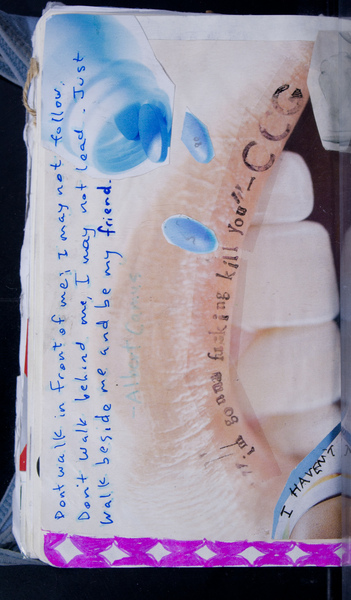 Dont walk in front of me; I may not follow.
Don't walk behind me, I may not lead. Just
walk beside me and be my friend.
-Albert Camus
"im gonna fucking kill you"-CCG
I HAVEN'T